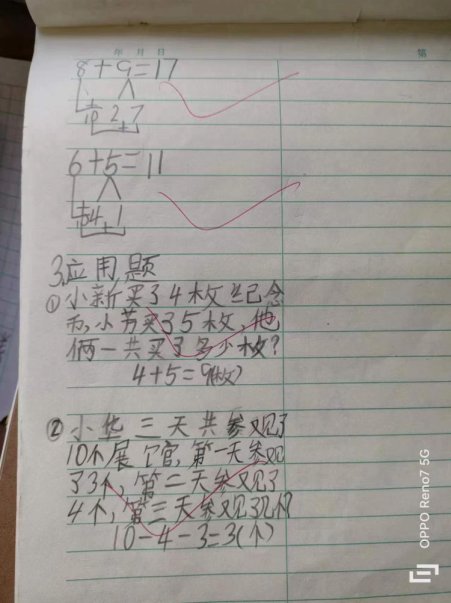 年 月 日
第
8+9=17
10 2 7
6+5=11
10 4 1
3.应用题
①小新买了4枚纪念
币,小芳买了5枚,他
俩一共买了多少枚?
4+5=9(枚)
②小华三天共参观了
10个展馆,第一天参观
了3个,第二天参观了
4个,第三天参观了几个?
10-4-3=3(个)
OPPO Reno7 5G